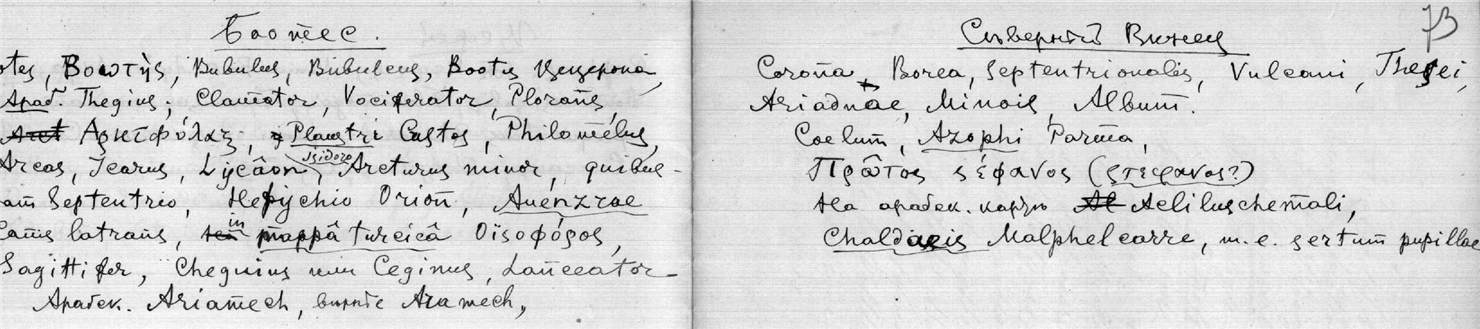 Боотес.
otes, Βοωτὴς, Bubulus, Bubulcus, Bootis Цицерона,
Араб. Thegius, Clamator, Vociferator, Plorans,
Αρκτφύλαξ, Plaustri Custos, Philomelus,
Arcas, Icarus, Lycâon, Isidoro Arcturus minor, quibus-
am Septentrio, Hesychio Orion, Auenzrae
Canis latrans, in mappâ turcicâ Οϊσοφόρος,
Sagittifer, Cheguius или Ceginus, Lanceator
Арабск. Ariamech, вернѣе Aramech,
73
Сѣверный Вѣнец
Corona Borea, Septentrionalis, Vulcani, Thesei,
Ariadnae, Minois, Album.
Coelum, Azophi Parma,
Πρῶτος ςέφανος (στεφανος?)
на арабск. карту Aeliluschemali,
Chaldaeis Malphelcarre, т.е. sertum pupillae